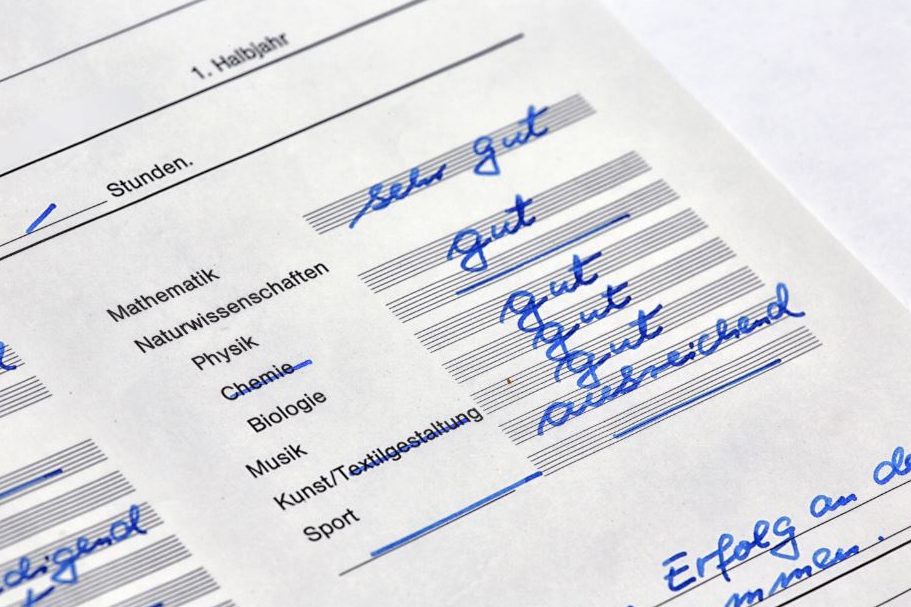 1. Halbjahr
Stunden.
Mathematik sehr gut
Naturwissenschaften
Physik gut
Chemie
Biologie gut
Musik gut
Kunst/Textilgestaltung gut
Sport ausreichend
digend
Erfolg an
mmen.